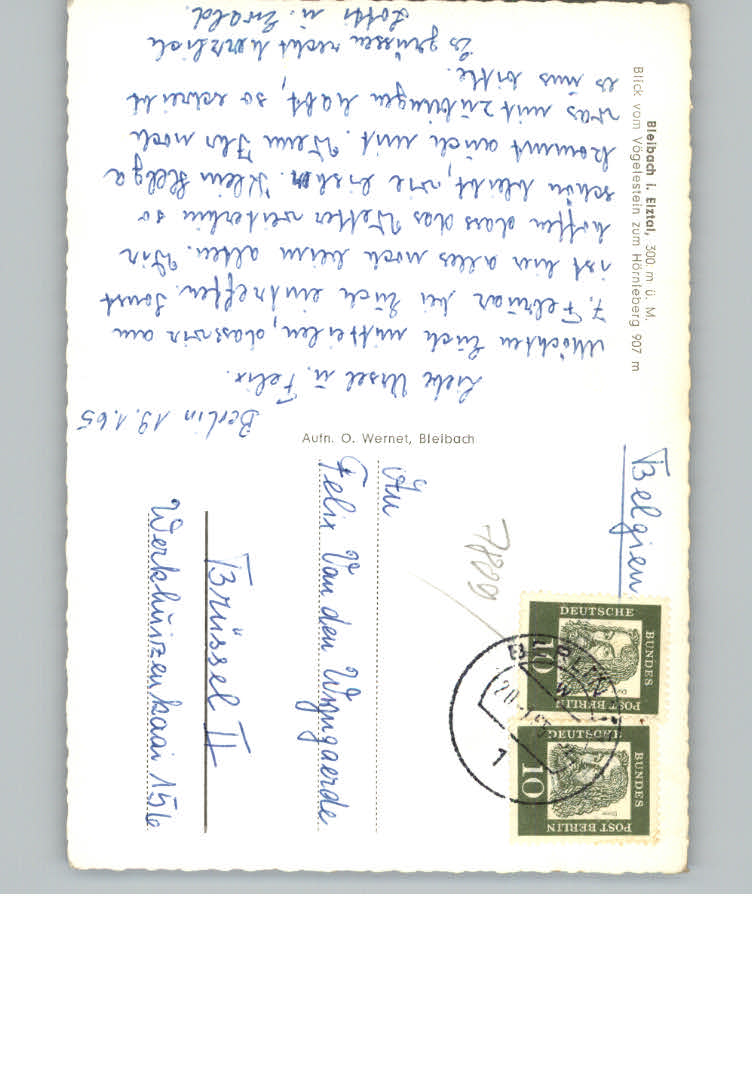 Berlin 19.1.65
Liebe Ursel u. Felix.
Möchten Euch mitteilen, dass wir am
7. Februar bei Euch eintreffen. Sonst
ist hier alles noch beim alten. Wir
hoffen dass das Wetter weiterhin so
schön bleibt, wie bisher. Klein Helga
kommt auch mit. Wenn Ihr noch
was mitzubringen habt, so schreibt
es uns bitte.
Es grüssen recht herzlich
Lotti u. Ewald.
Bleibach i. Elztal, 300 m ü. M.
Blick vom Vögelestein zum Hörnleberg 907 m
Aufn. O. Wernet, Bleibach
An
Felix Van den Wyngaerde
Brüssel II
Werkhuizenkaai 156
Belgien
DEUTSCHE
BUNDES
POST BERLIN
10
DEUTSCHE
BUNDES
POST BERLIN
10
BERLIN
1